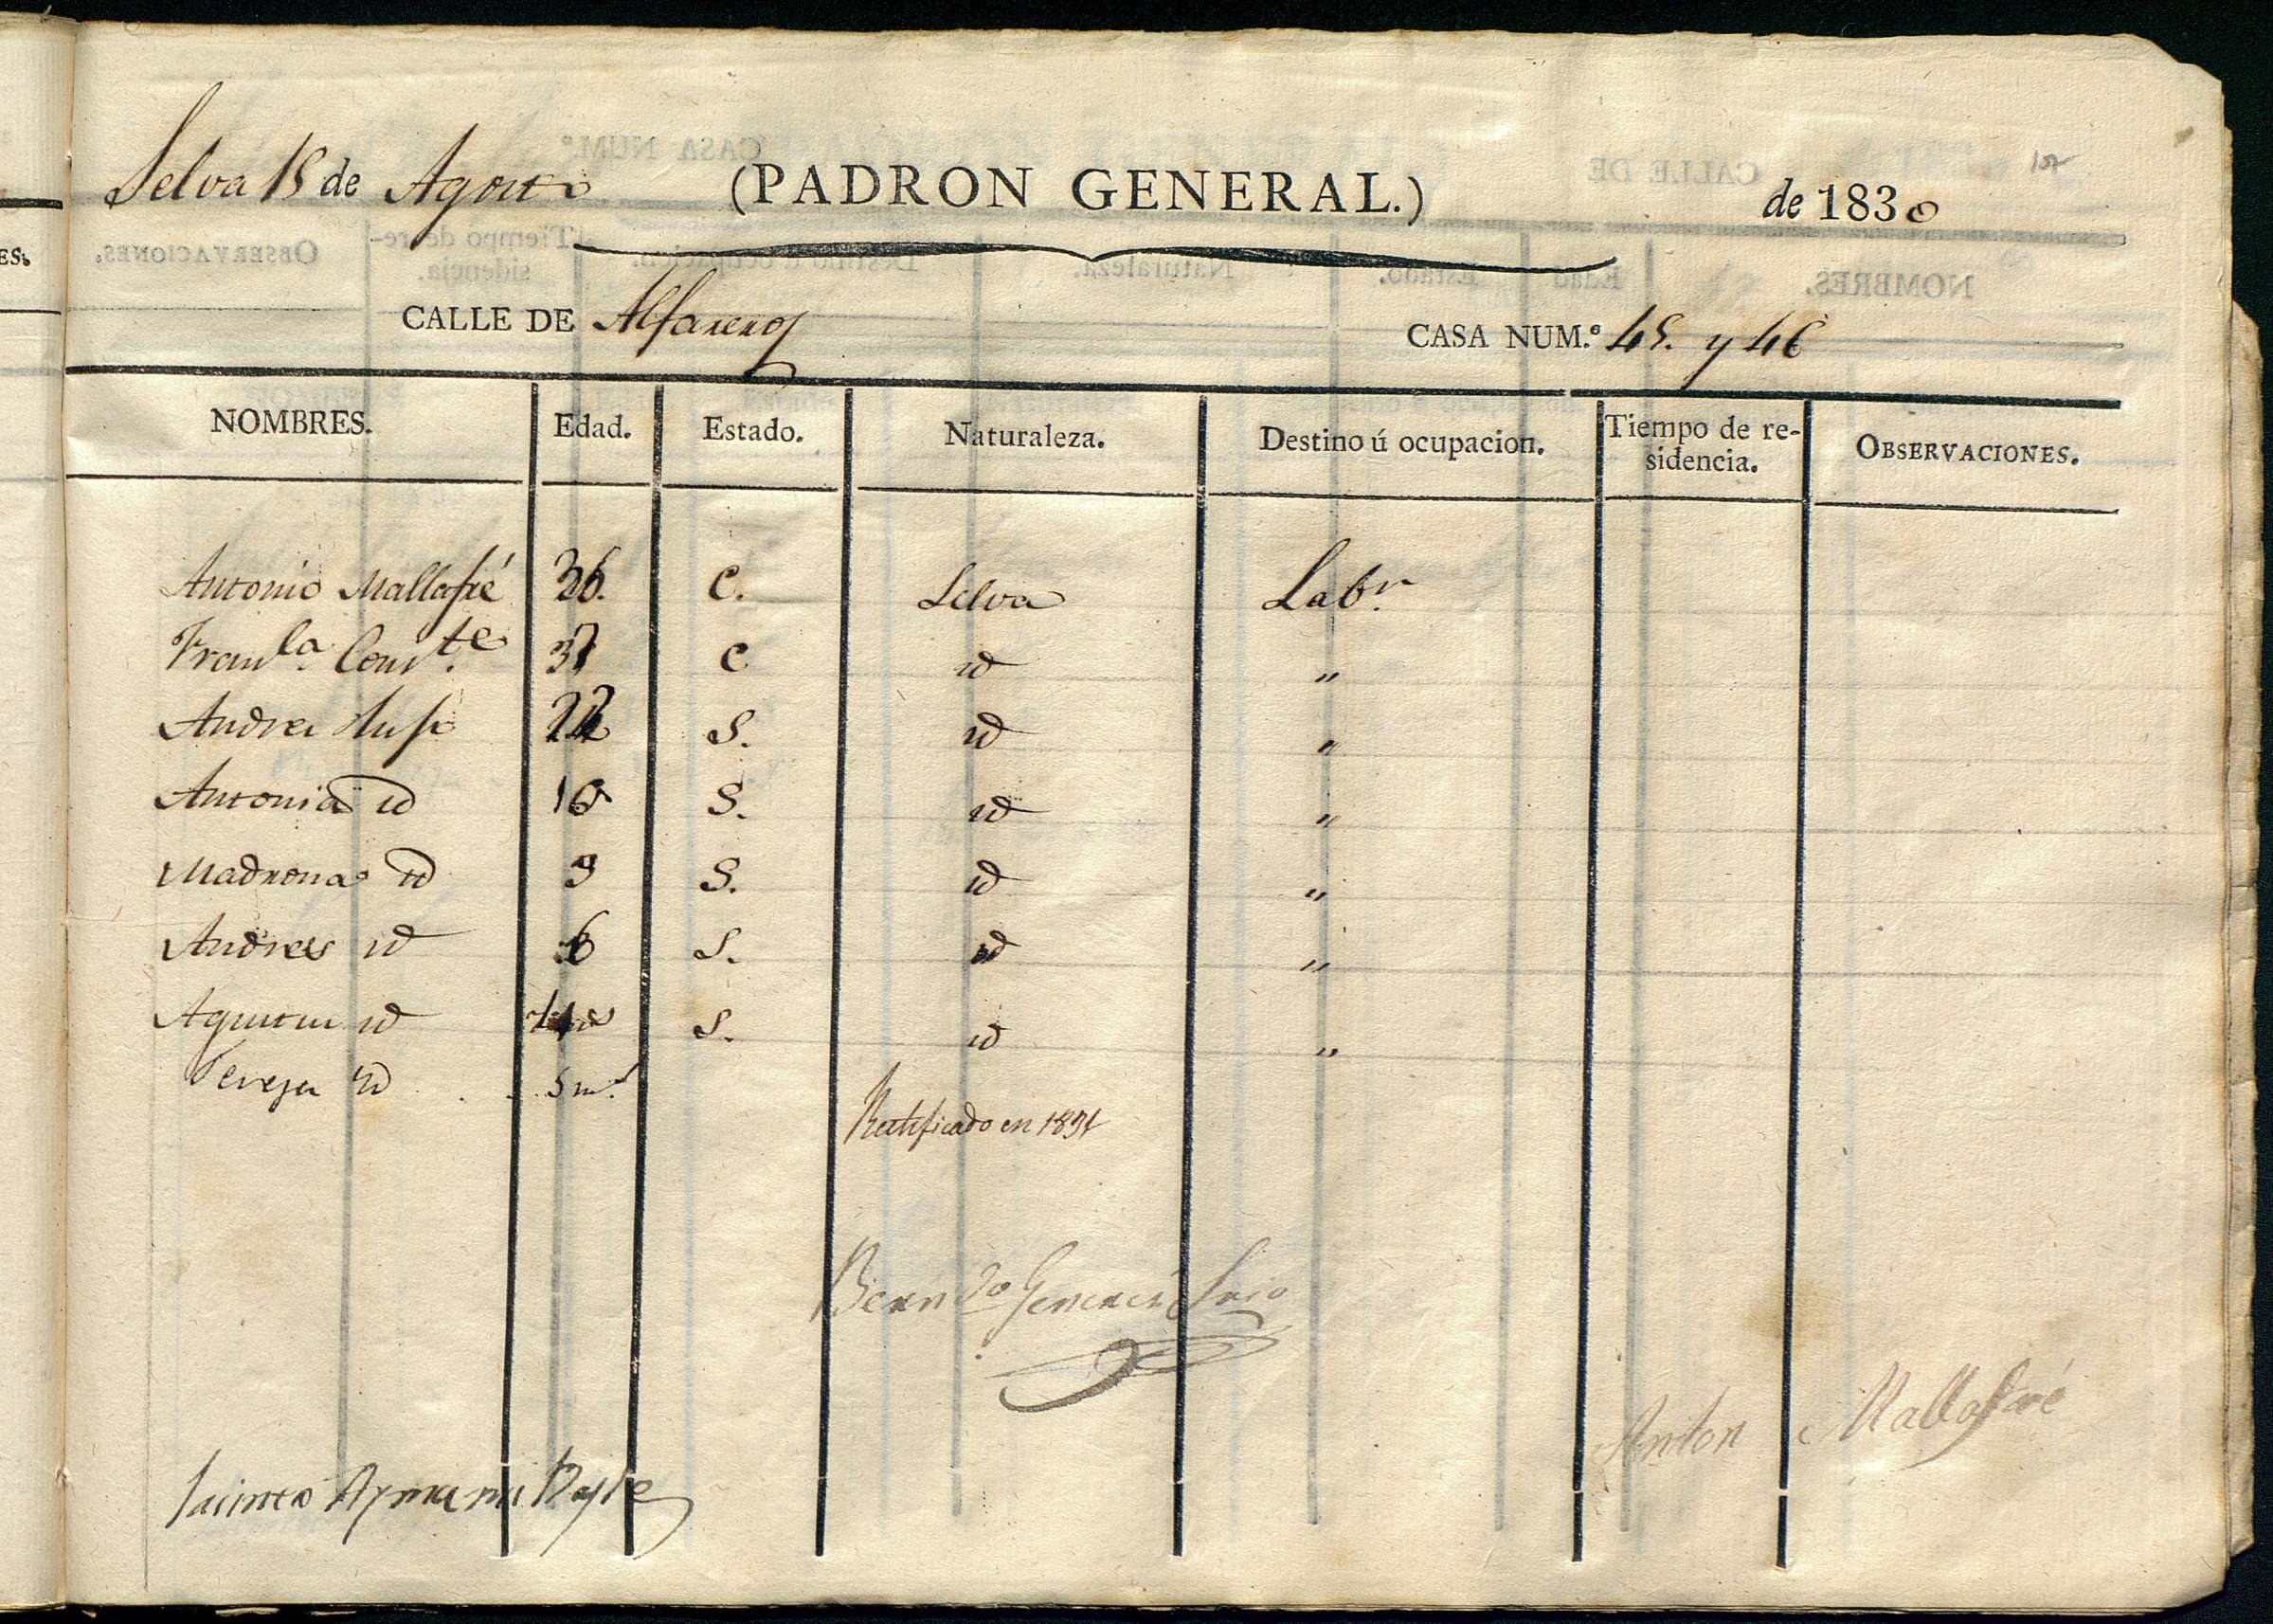 Selva 15 de Agosto (PADRON GENERAL.) de 1830
CALLE DE Alfareros CASA NUM.º 45. y 46
NOMBRES. Edad. Estado. Naturaleza. Destino ú ocupacion. Tiempo de residencia. OBSERVACIONES.
Antonio Mallafré 36. C. Selva Labr.
Fran.ca Cons.te C id "
Andrea S. id "
Antonia id 16 S. id "
Madrona id 9 S. id "
Andres id 6 S. id "
Agustin id S. id "
Teresa id 5 m.s
Rectificado en 1831
Berndo Srio
Anton Mallafré
Jaime Aymami Bayle